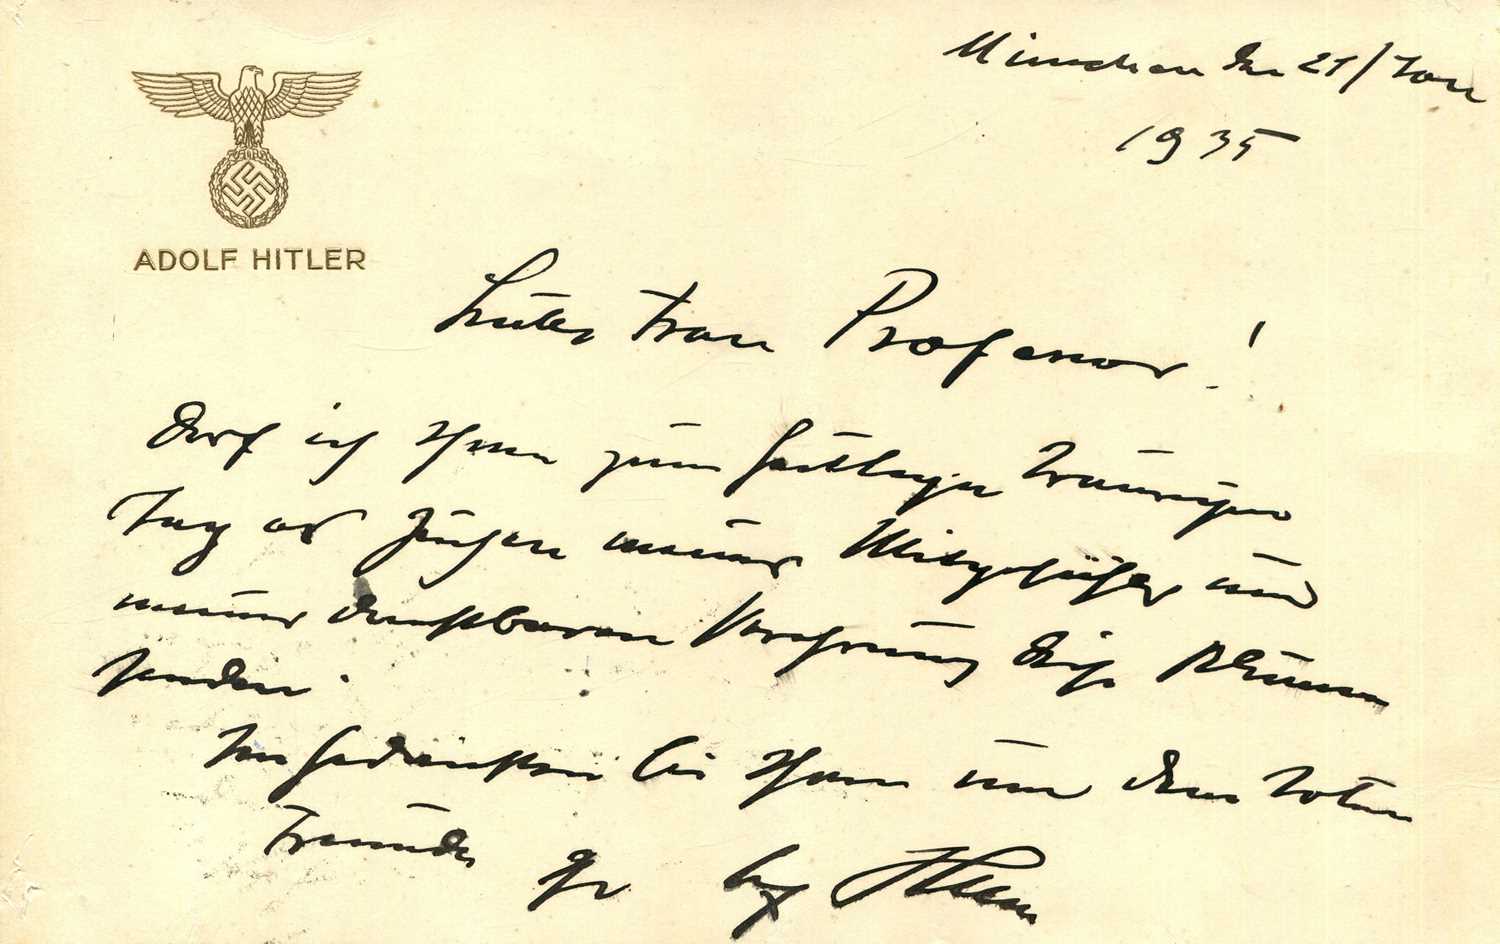 München den 21/Jan
1935
ADOLF HITLER
Liebe Frau Professor!
Darf ich Ihnen zum heutigen traurigen
Tag als Zeichen meines Mitgefühles und
meiner dankbaren Verehrung diese Blumen
senden.
In Gedanken bei Ihnen und dem toten
Freunde